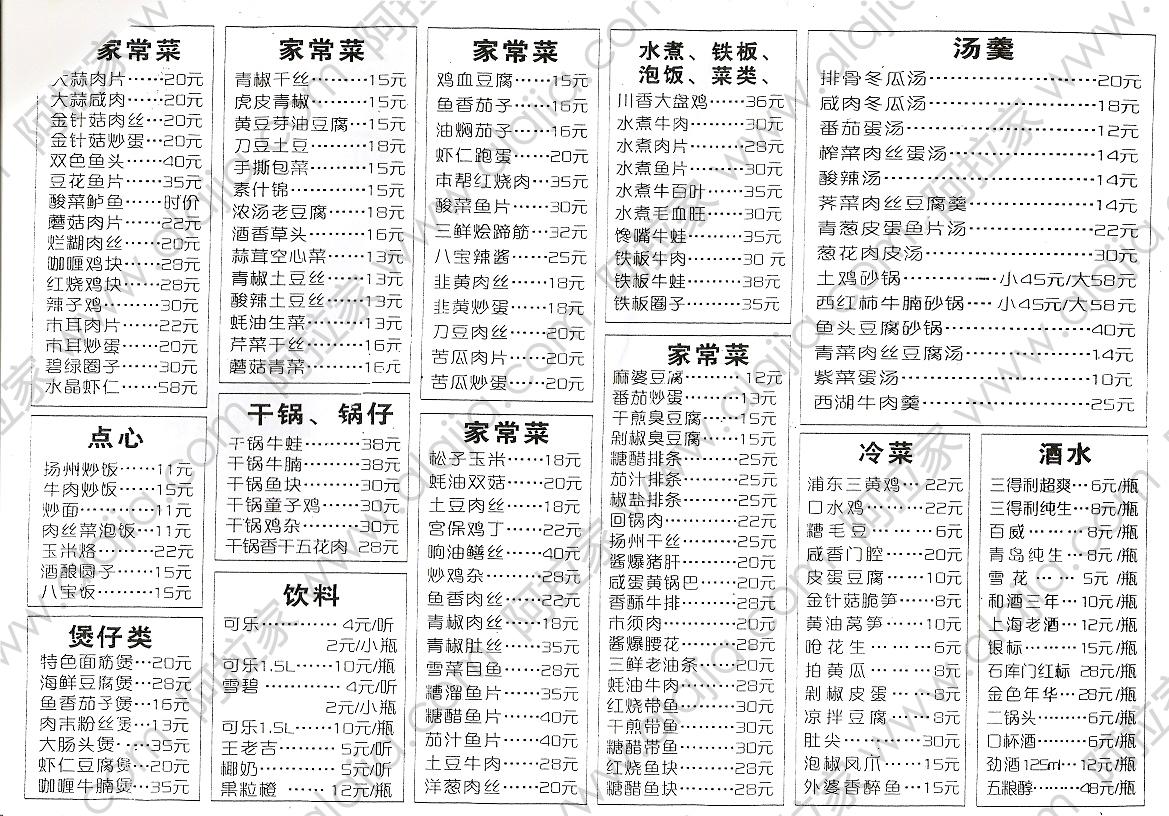 家常菜
大蒜肉片······20元
大蒜咸肉······20元
金针菇肉丝···20元
金针菇炒蛋···20元
双色鱼头······40元
豆花鱼片······35元
酸菜鲈鱼······时价
蘑菇肉片······22元
烂糊肉丝······20元
咖喱鸡块······28元
红烧鸡块······28元
辣子鸡·········30元
木耳肉片······22元
木耳炒蛋······20元
碧绿圈子······30元
水晶虾仁······58元
点心
扬州炒饭······11元
牛肉炒饭······15元
炒面············11元
肉丝菜泡饭···11元
玉米烙·········22元
酒酿圆子······15元
八宝饭·········15元
煲仔类
特色面筋煲···20元
海鲜豆腐煲···28元
鱼香茄子煲···16元
肉末粉丝煲···13元
大肠头煲······35元
虾仁豆腐煲···20元
咖喱牛腩煲···35元
家常菜
青椒干丝·········15元
虎皮青椒·········15元
黄豆芽油豆腐···15元
刀豆土豆·········18元
手撕包菜·········15元
素什锦············15元
浓汤老豆腐······18元
酒香草头·········16元
蒜茸空心菜······13元
青椒土豆丝······13元
酸辣土豆丝······13元
蚝油生菜·········13元
芹菜干丝·········16元
蘑菇青菜·········16元
干锅、锅仔
干锅牛蛙·········38元
干锅牛腩·········38元
干锅鱼块·········30元
干锅童子鸡······30元
干锅鸡杂·········30元
干锅香干五花肉 28元
饮料
可乐············4元/听
2元/小瓶
可乐1.5L······10元/瓶
雪碧············4元/听
2元/小瓶
可乐1.5L······10元/瓶
王老吉·········5元/听
椰奶············5元/听
果粒橙·········12元/瓶
家常菜
鸡血豆腐······15元
鱼香茄子······16元
油焖茄子······16元
虾仁跑蛋······20元
本帮红烧肉···35元
酸菜鱼片······30元
三鲜烩蹄筋···32元
八宝辣酱······25元
韭黄肉丝······18元
韭黄炒蛋······18元
刀豆肉丝······20元
苦瓜肉片······20元
苦瓜炒蛋······20元
家常菜
松子玉米······18元
蚝油双菇······20元
土豆肉丝······18元
宫保鸡丁······22元
响油鳝丝······40元
炒鸡杂·········28元
鱼香肉丝······22元
青椒肉丝······18元
青椒肚丝······35元
雪菜目鱼······28元
糟溜鱼片······35元
糖醋鱼片······40元
茄汁鱼片······40元
土豆牛肉······28元
洋葱肉丝······20元
水煮、铁板、
泡饭、菜类、
川香大盘鸡···36元
水煮牛肉······30元
水煮肉片······28元
水煮鱼片······30元
水煮牛百叶···35元
水煮毛血旺···30元
馋嘴牛蛙······35元
铁板牛肉······30元
铁板牛蛙······38元
铁板圈子······35元
家常菜
麻婆豆腐·········12元
番茄炒蛋·········13元
干煎臭豆腐······15元
剁椒臭豆腐······15元
糖醋排条·········25元
茄汁排条·········25元
椒盐排条·········25元
回锅肉············22元
扬州干丝·········25元
酱爆猪肝·········20元
咸蛋黄锅巴······20元
香酥牛排·········28元
木须肉············20元
酱爆腰花·········28元
三鲜老油条······20元
蚝油牛肉·········28元
红烧带鱼·········30元
干煎带鱼·········30元
糖醋带鱼·········30元
红烧鱼块·········28元
糖醋鱼块·········28元
汤羹
排骨冬瓜汤············20元
咸肉冬瓜汤············18元
番茄蛋汤···············12元
榨菜肉丝蛋汤·········14元
酸辣汤··················14元
荠菜肉丝豆腐羹······14元
青葱皮蛋鱼片汤······22元
葱花肉皮汤············30元
土鸡砂锅·········小45元/大58元
西红柿牛腩砂锅···小45元/大58元
鱼头豆腐砂锅·········40元
青菜肉丝豆腐汤······14元
紫菜蛋汤···············10元
西湖牛肉羹············25元
冷菜
浦东三黄鸡···22元
口水鸡·········22元
糟毛豆·········6元
咸香门腔······20元
皮蛋豆腐······10元
金针菇脆笋···8元
黄油莴笋······10元
呛花生·········6元
拍黄瓜·········8元
剁椒皮蛋······8元
凉拌豆腐······8元
肚尖············30元
泡椒凤爪······15元
外婆香醉鱼···15元
酒水
三得利超爽···6元/瓶
三得利纯生···8元/瓶
百威············8元/瓶
青岛纯生···8元/瓶
雪花······5元/瓶
和酒三年···10元/瓶
上海老酒···12元/瓶
银标·········15元/瓶
石库门红标 28元/瓶
金色年华···28元/瓶
二锅头······6元/瓶
口杯酒······6元/瓶
劲酒125ml···12元/瓶
五粮醇······48元/瓶